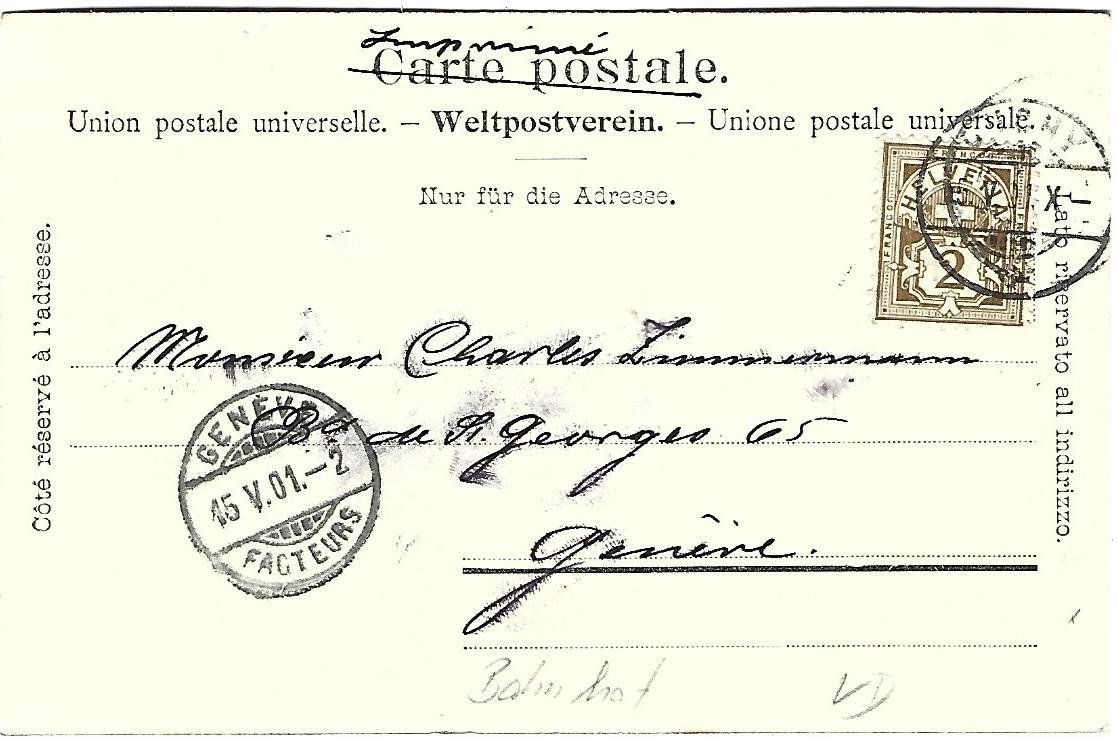 Imprimé
Carte postale.
Union postale universelle. – Weltpostverein. – Unione postale universale.
Nur für die Adresse.
Côté réservé à l'adresse.
Lato riservato all indirizzo.
FRANCO
HELVETIA
FRANCO
2
X
Monsieur Charles Zimmermann
Bd de St. Georges 65
Genève.
GENÈVE
15 V.01.–2
FACTEURS
Bahnhof VD